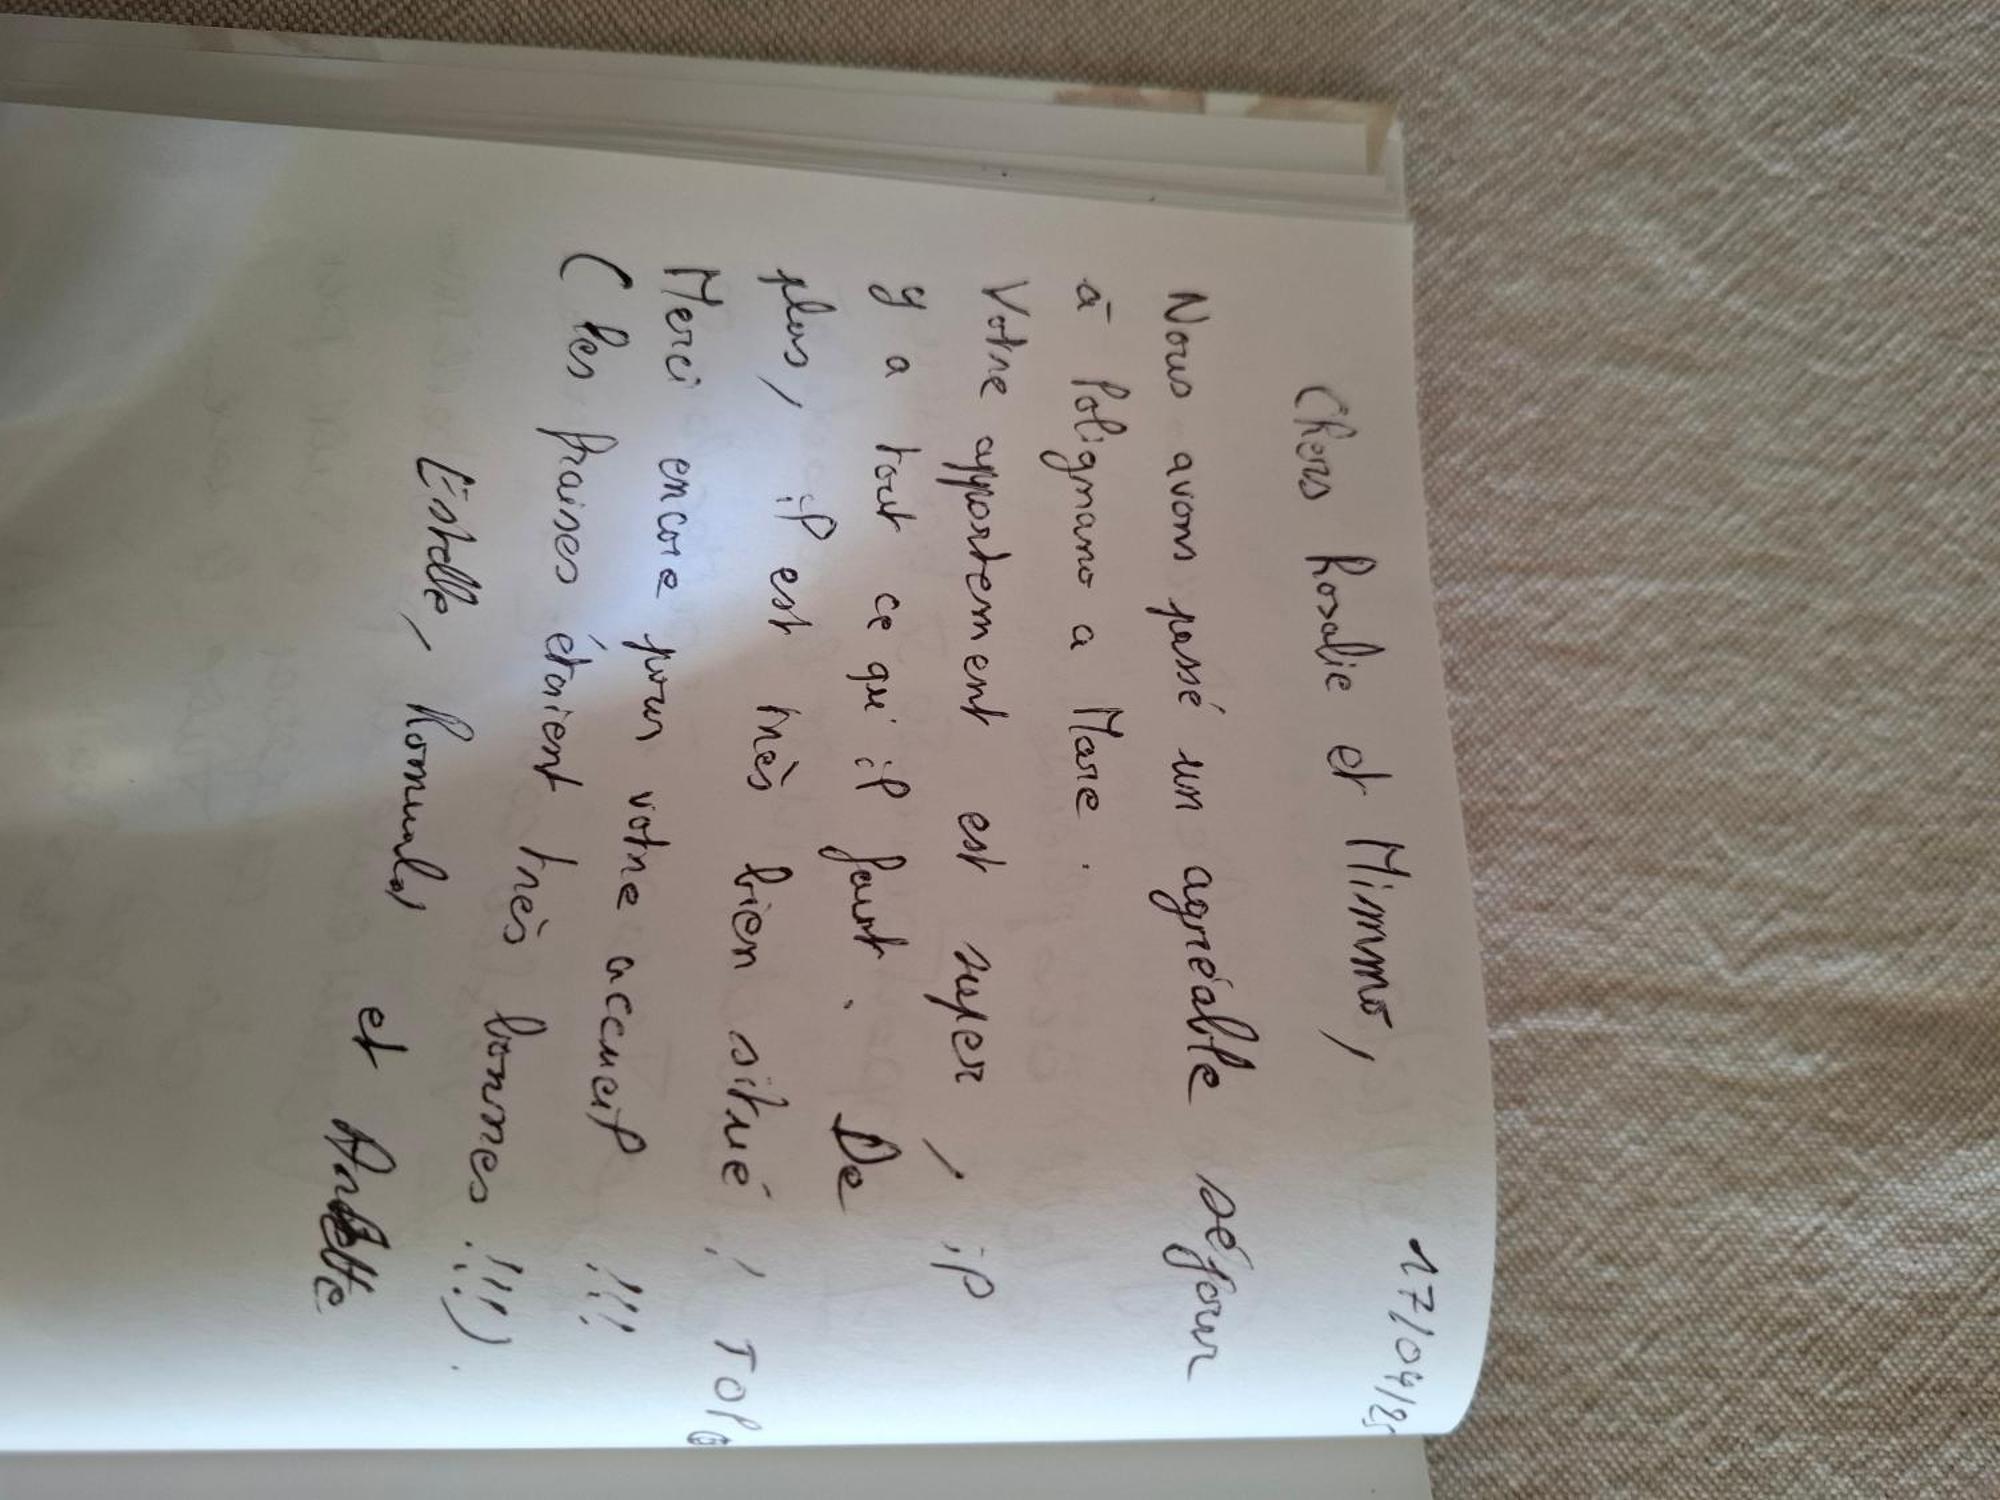 17/04/25
Chers Rosalie et Mimmo,
Nous avons passé un agréable séjour
à Polignano a Mare.
Votre appartement est super, il
y a tout ce qu'il faut. De
plus, il est très bien situé ! TOP
Merci encore pour votre accueil !!!
(Les fraises étaient très bonnes !!!).
Estelle, Romuald et